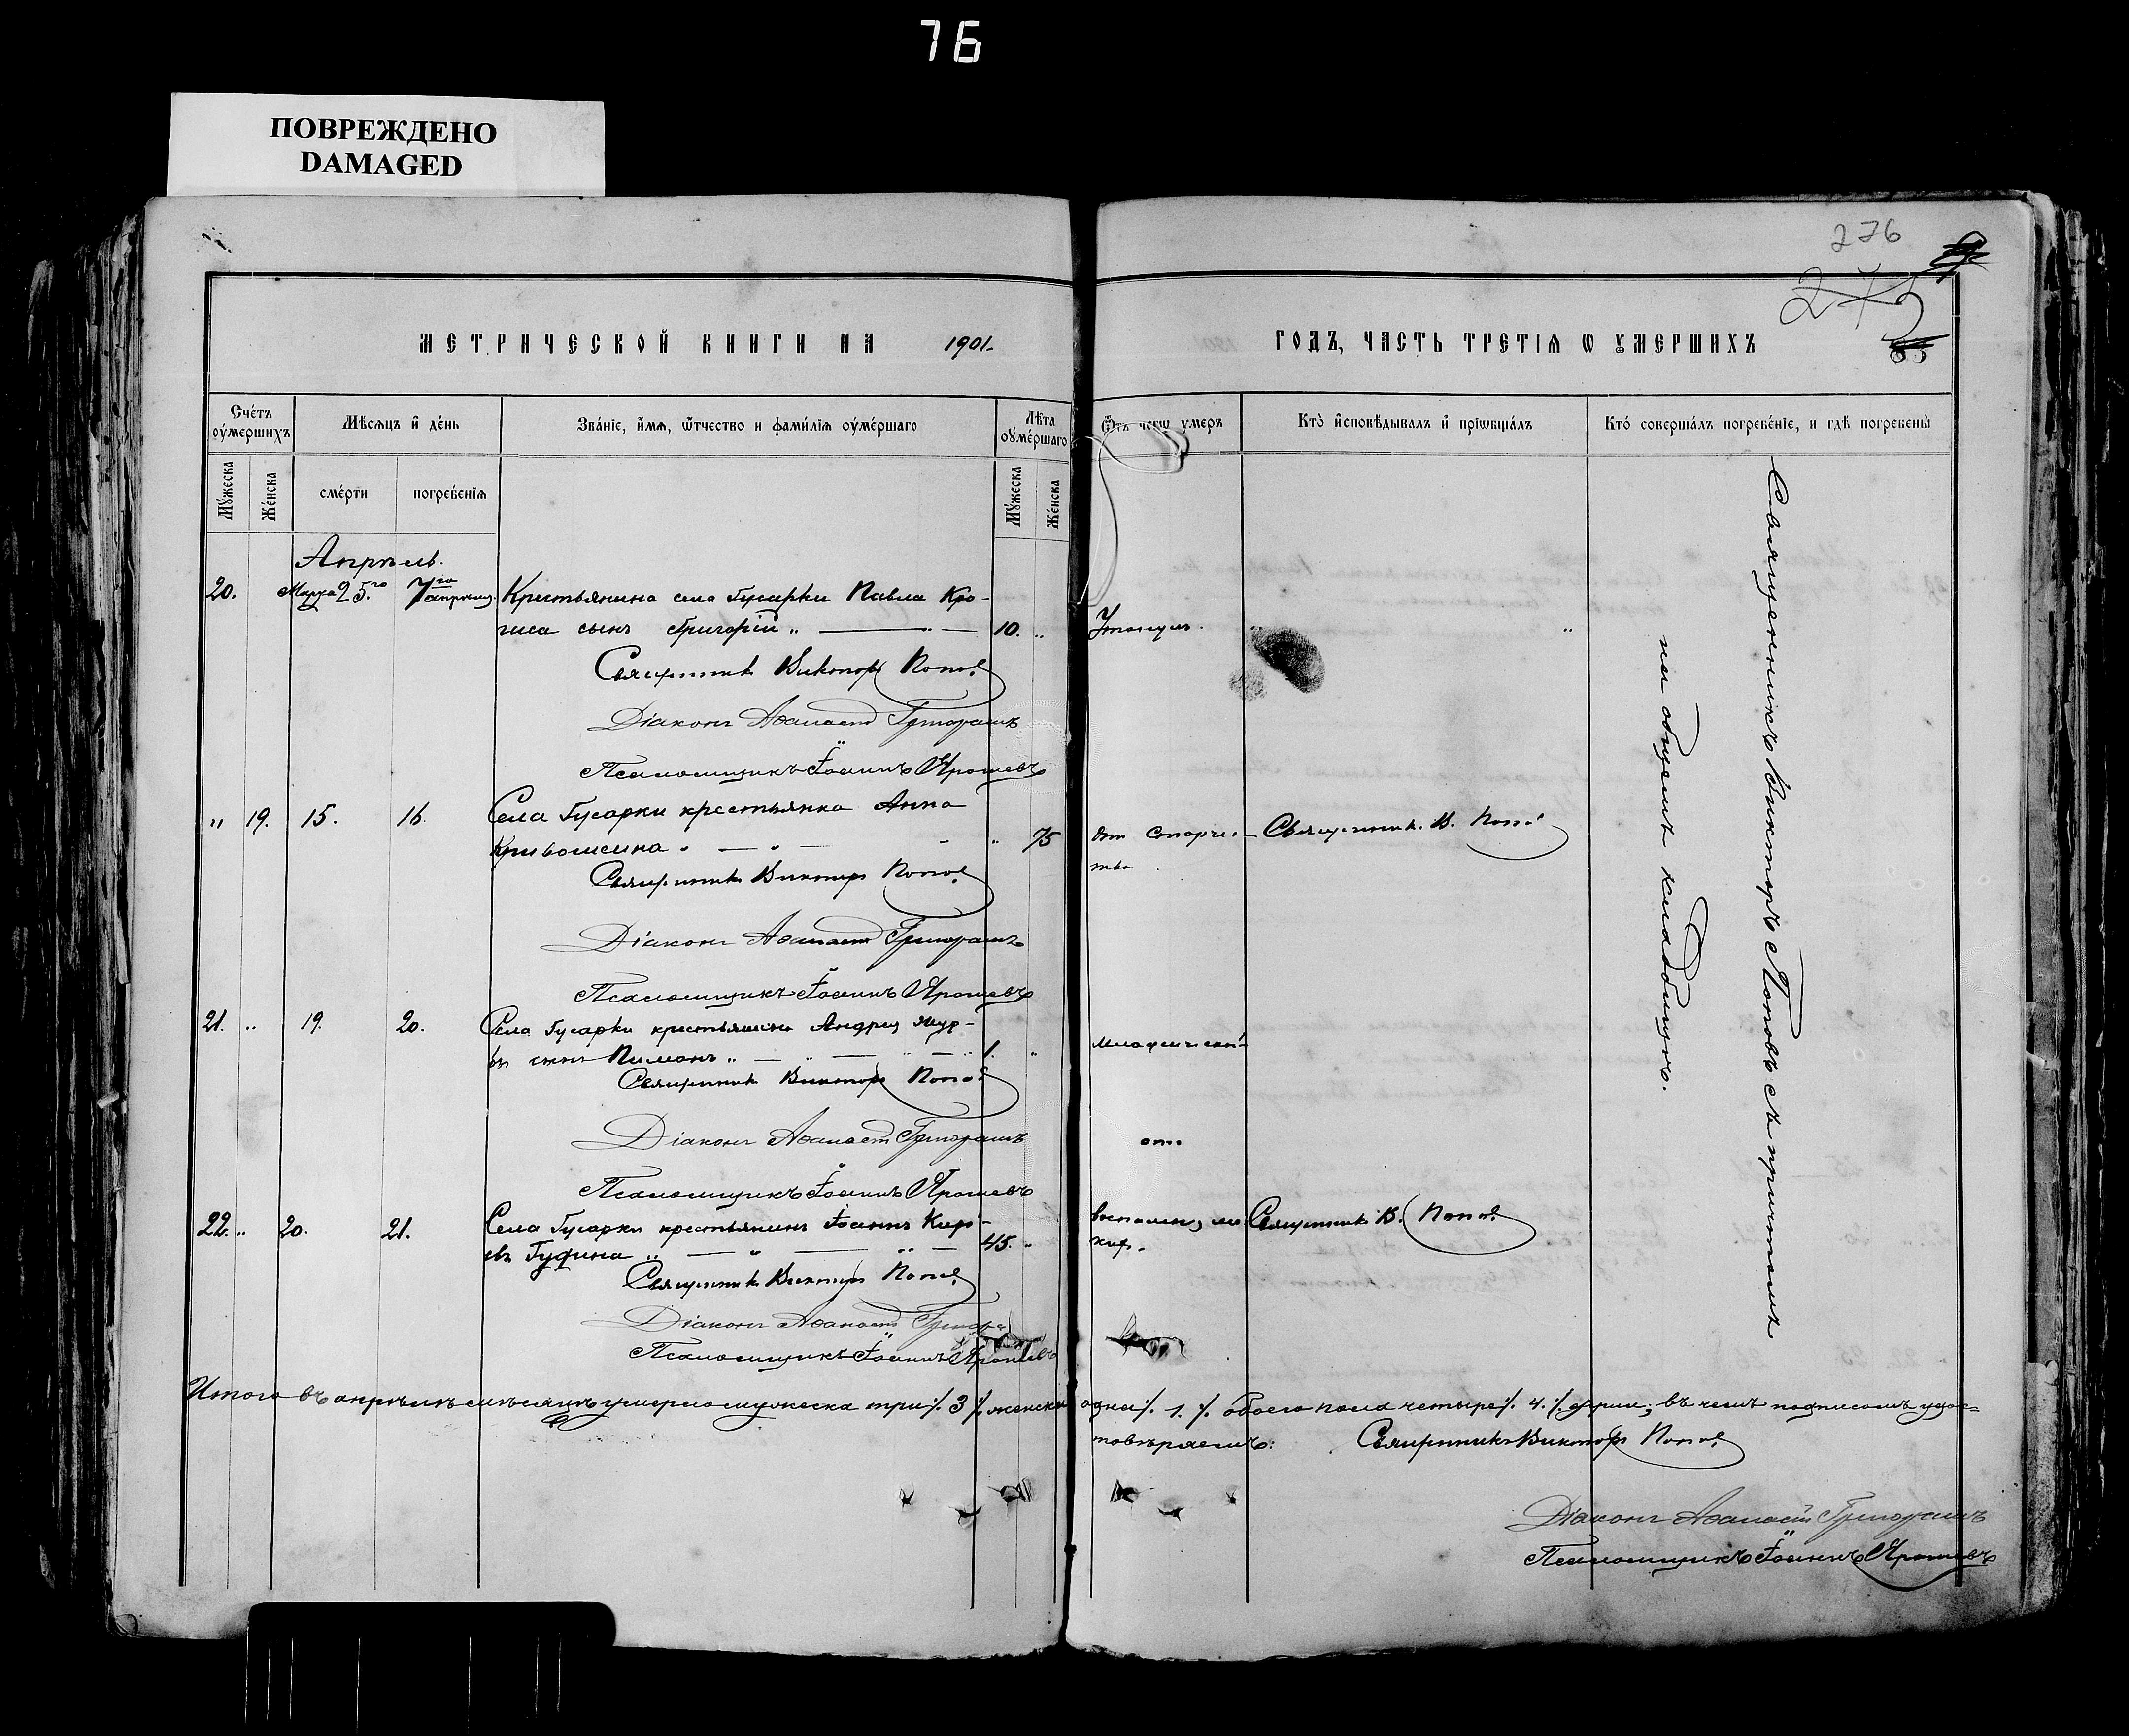 76
ПОВРЕЖДЕНО
DAMAGED
276
275
МЕТРИЧЕСКОЙ КНИГИ НА 1901. ГОДЪ, ЧАСТЬ ТРЕТІЯ Ѡ УМЕРШИХЪ
Счётъ оумершихъ
Мѣсяцъ и день
Званіе, имя, ѿчество и фамилія оумершаго
Лѣта оумершаго
Ѿъ чегѡ умеръ
Кто исповѣдывалъ и пріѡбщалъ
Кто совершалъ погребеніе, и гдѣ погребены
Мужеска
Женска
смерти
погребенія
Мужеска
Женска
Апрѣль.
20. Марта 25.го 7го апрѣля. Крестьянина села Гусарки Павла
сынъ Григорій „ — „ — 10. „ Утонулъ. „ „
Священникъ Викторъ Поповъ
Діаконъ Аѳанасій Григорашъ
Псаломщикъ Іоаннъ Ярошевъ
„ 19. 15. 16. Села Гусарки крестьянка Анна
Кривошеина „ — „ — „ 75 отъ старче- Священникъ В. Поповъ
ства
Священникъ Викторъ Поповъ
Діаконъ Аѳанасій Григорашъ
Псаломщикъ Іоаннъ Ярошевъ
21. „ 19. 20. Села Гусарки крестьянина Андрея
сынъ Пименъ „ — „ — „ — 1. „
Священникъ Викторъ Поповъ
Діаконъ Аѳанасій Григорашъ
отъ
Псаломщикъ Іоаннъ Ярошевъ
22. „ 20. 21. Села Гусарки крестьянинъ Іоаннъ воспаленія Священникъ В. Поповъ
Гудина „ — „ — „ — 45. „
Священникъ Викторъ Поповъ
Діаконъ Аѳанасій
Псаломщикъ Іоаннъ Ярошевъ
Священникъ Викторъ Поповъ съ причтомъ
на общемъ кладбищѣ.
Итого въ апрѣлѣ мѣсяцѣ умерло мужеска три ⁒ 3 ⁒ женска одна ⁒ 1. ⁒ обоего пола четыре ⁒ 4. ⁒ души; въ чемъ подписомъ удос=
товѣряемъ: Священникъ Викторъ Поповъ
Діаконъ Аѳанасій Григорашъ
Псаломщикъ Іоаннъ Ярошевъ